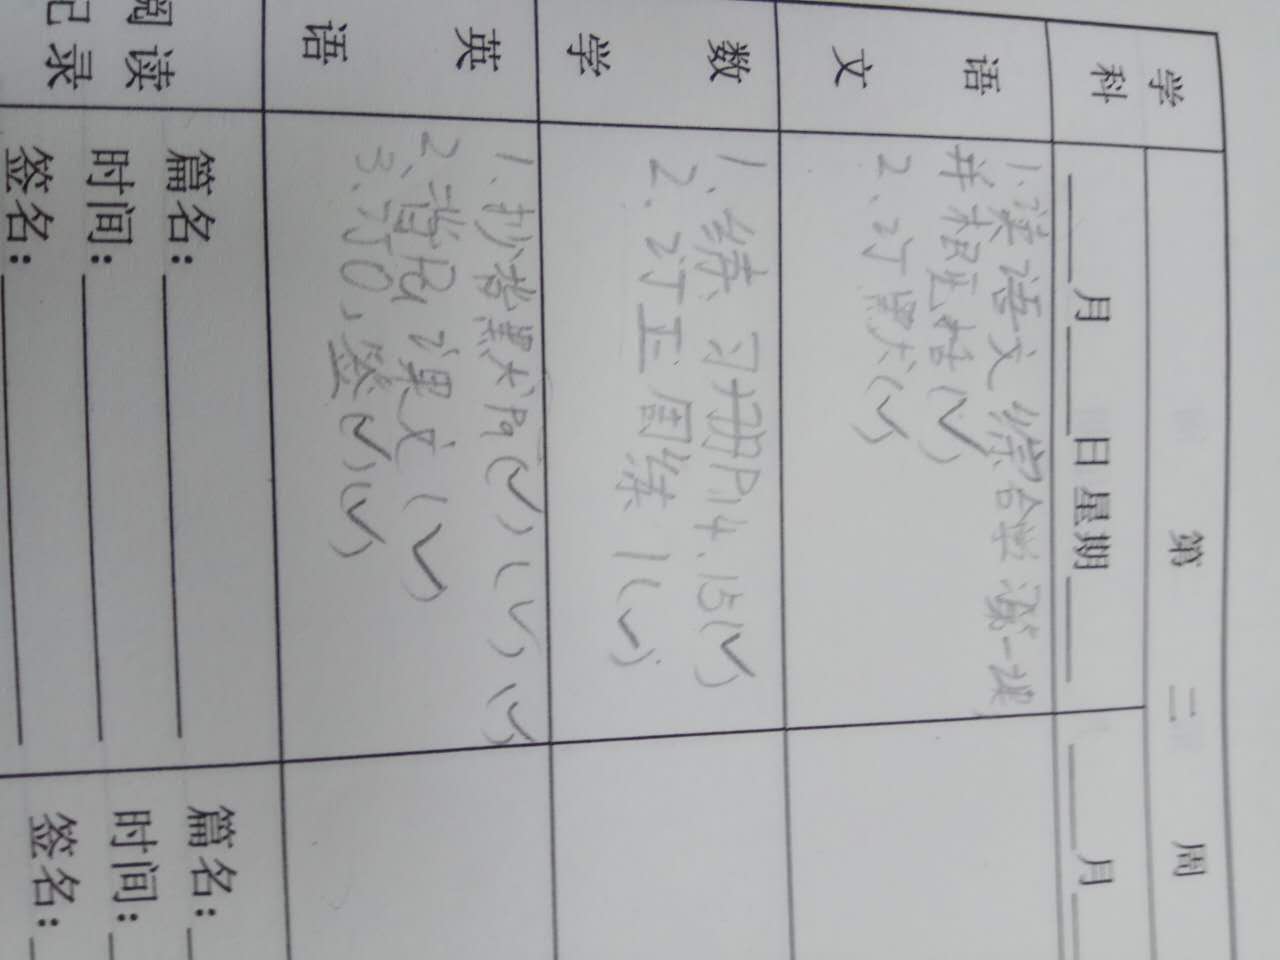 第 二 周
学科
____月____日 星期____
____月
语文
1.读语文综合学 一课
并 括(✓)
2.订 (✓)
数学
1.练习册P14.15(✓)
2.订正周练1(✓)
英语
1.抄 P9(✓)(✓)(✓)
2.背 课文(✓)
3.订0,签(✓)(✓)
阅读记录
篇名:____
时间:____
签名:____
篇名:
时间:
签名: